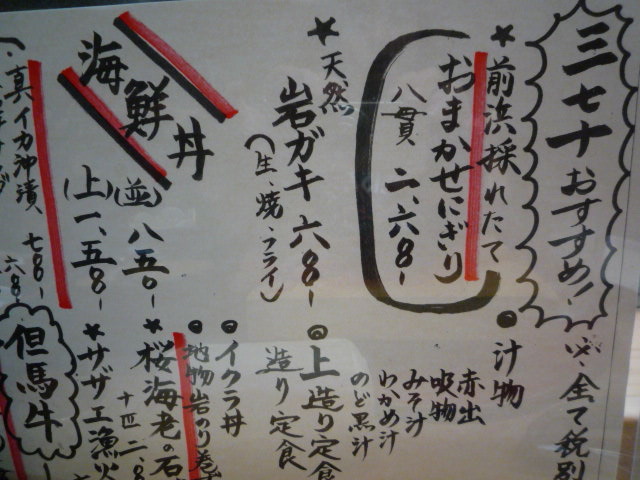 三七十おすすめ!
※全て税別
★前浜採れたて
おまかせにぎり
八貫 二、六八〇-
★天然
岩ガキ 六八〇-
(生、焼、フライ)
海鮮丼
(並) 八五〇-
(上) 一、五〇〇-
真イカ沖漬 七八〇-
●汁物
赤出
吸物
みそ汁
わかめ汁
のど黒汁
◎上造り定食
造り定食
●イクラ丼
●地物岩のり巻ず
★桜海老の石
★サザエ漁火
但馬牛